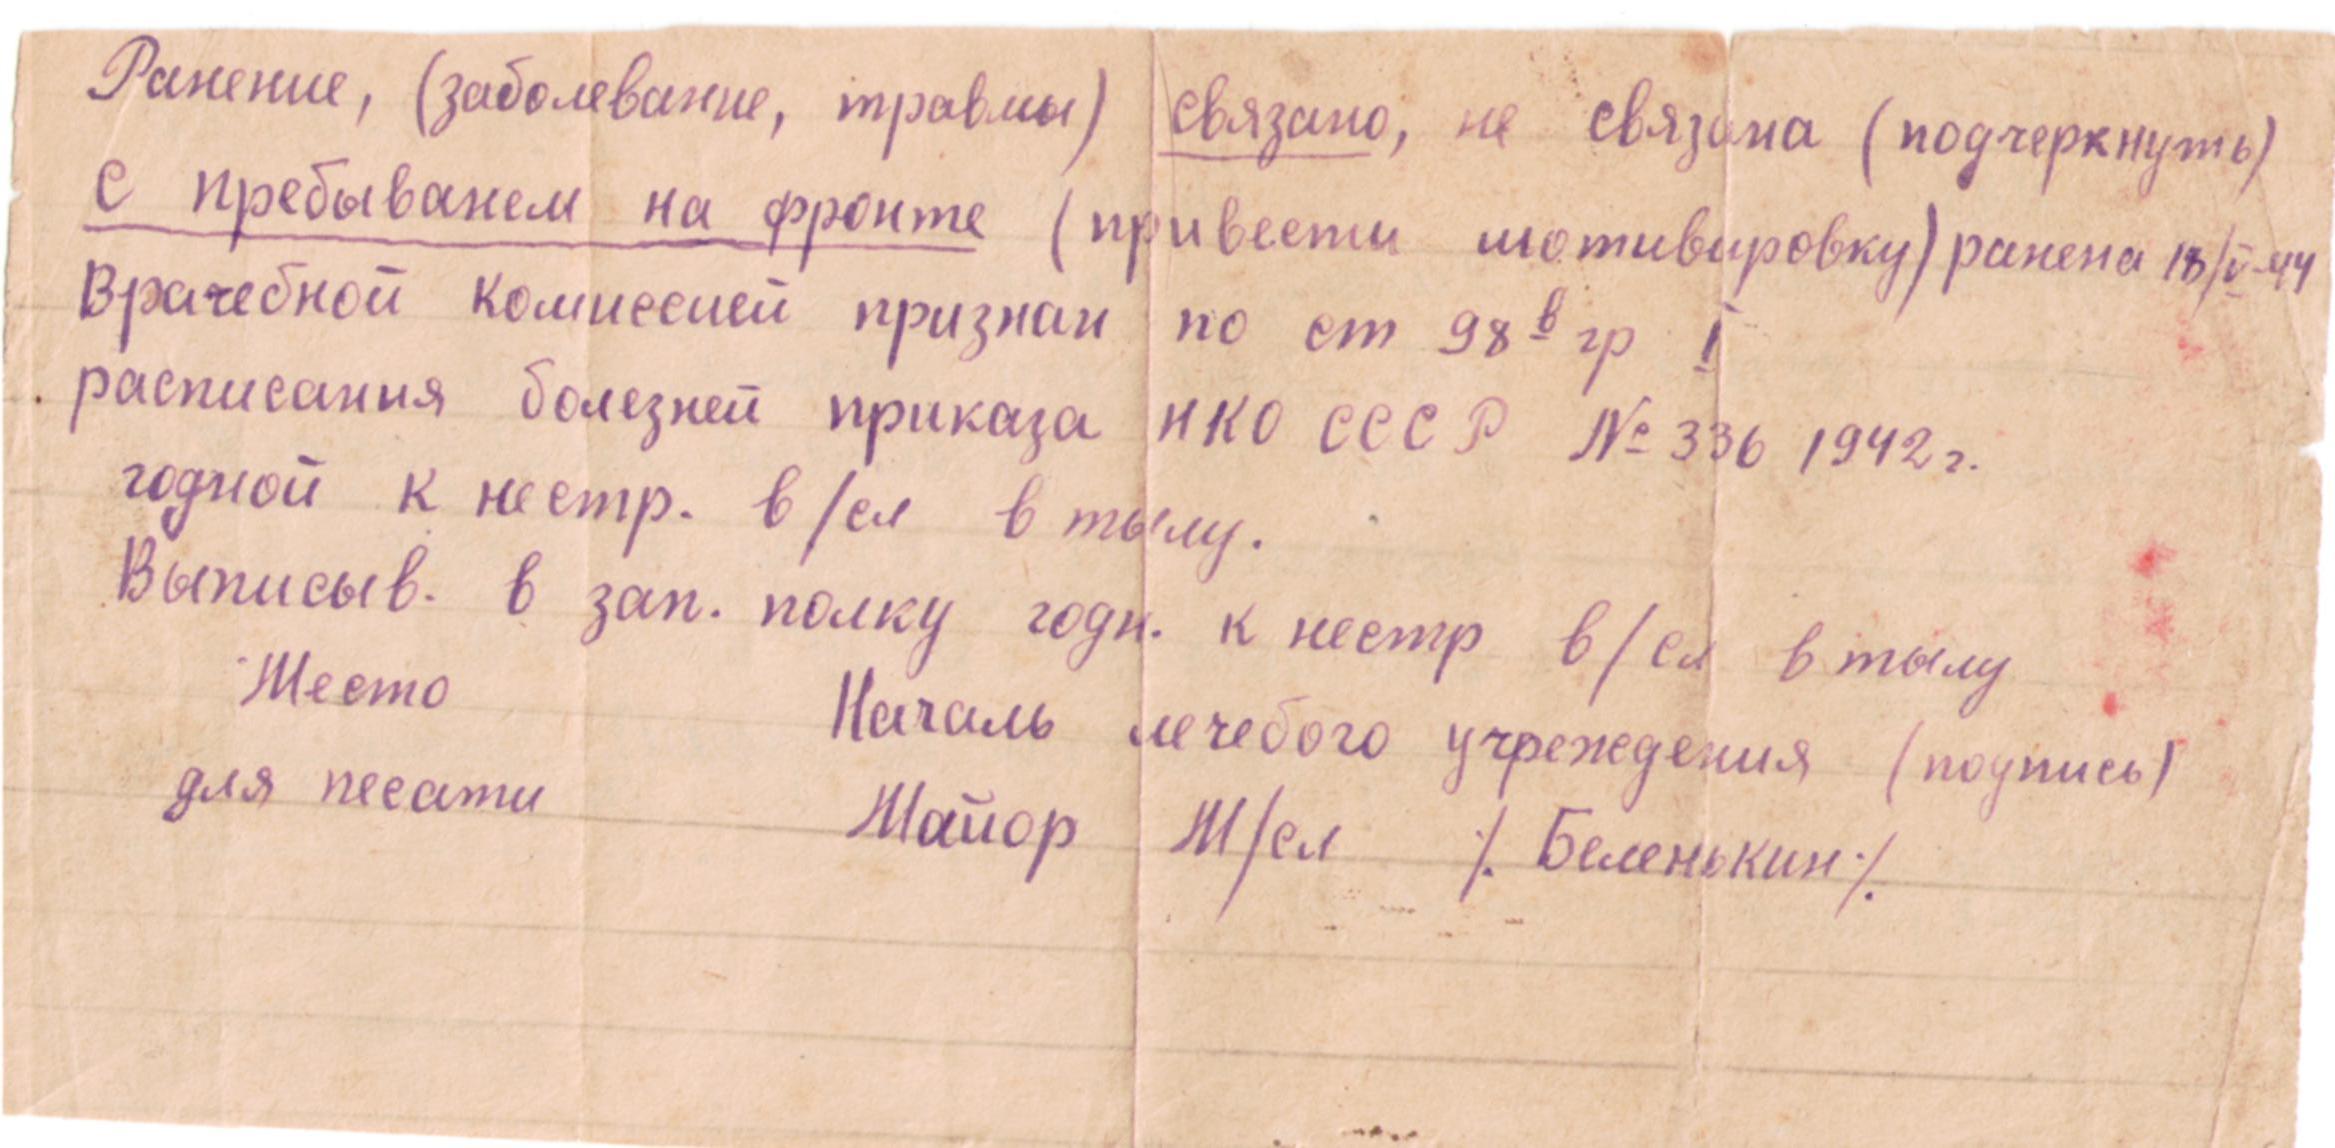 Ранение, (заболевание, травмы) связано, не связана (подчеркнуть)
с пребыванем на фронте (привести мотивировку) ранена 18/V-44
Врачебной комиссией признан по ст 98 в гр I
расписания болезней приказа НКО СССР № 336 1942 г.
годной к нестр. в/сл в тылу.
Выписыв. в зап. полку годн. к нестр в/сл в тылу
Место Началь лечебого учреждения (подпись)
для песати Майор М/сл /. Беленькин ./.